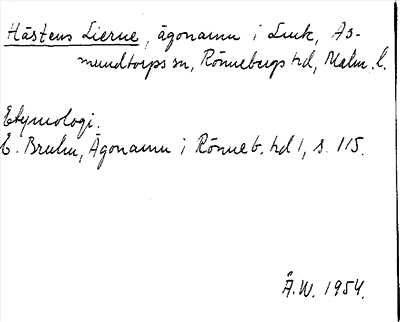 Hästens Lierne, ägonamn i Link, As-
mundtorps sn, Rönnebergs hd, Malm. l.
Etymologi.
E. Bruhn, Ägonamn i Rönneb. hd 1, s. 115.
Å.W. 1954.